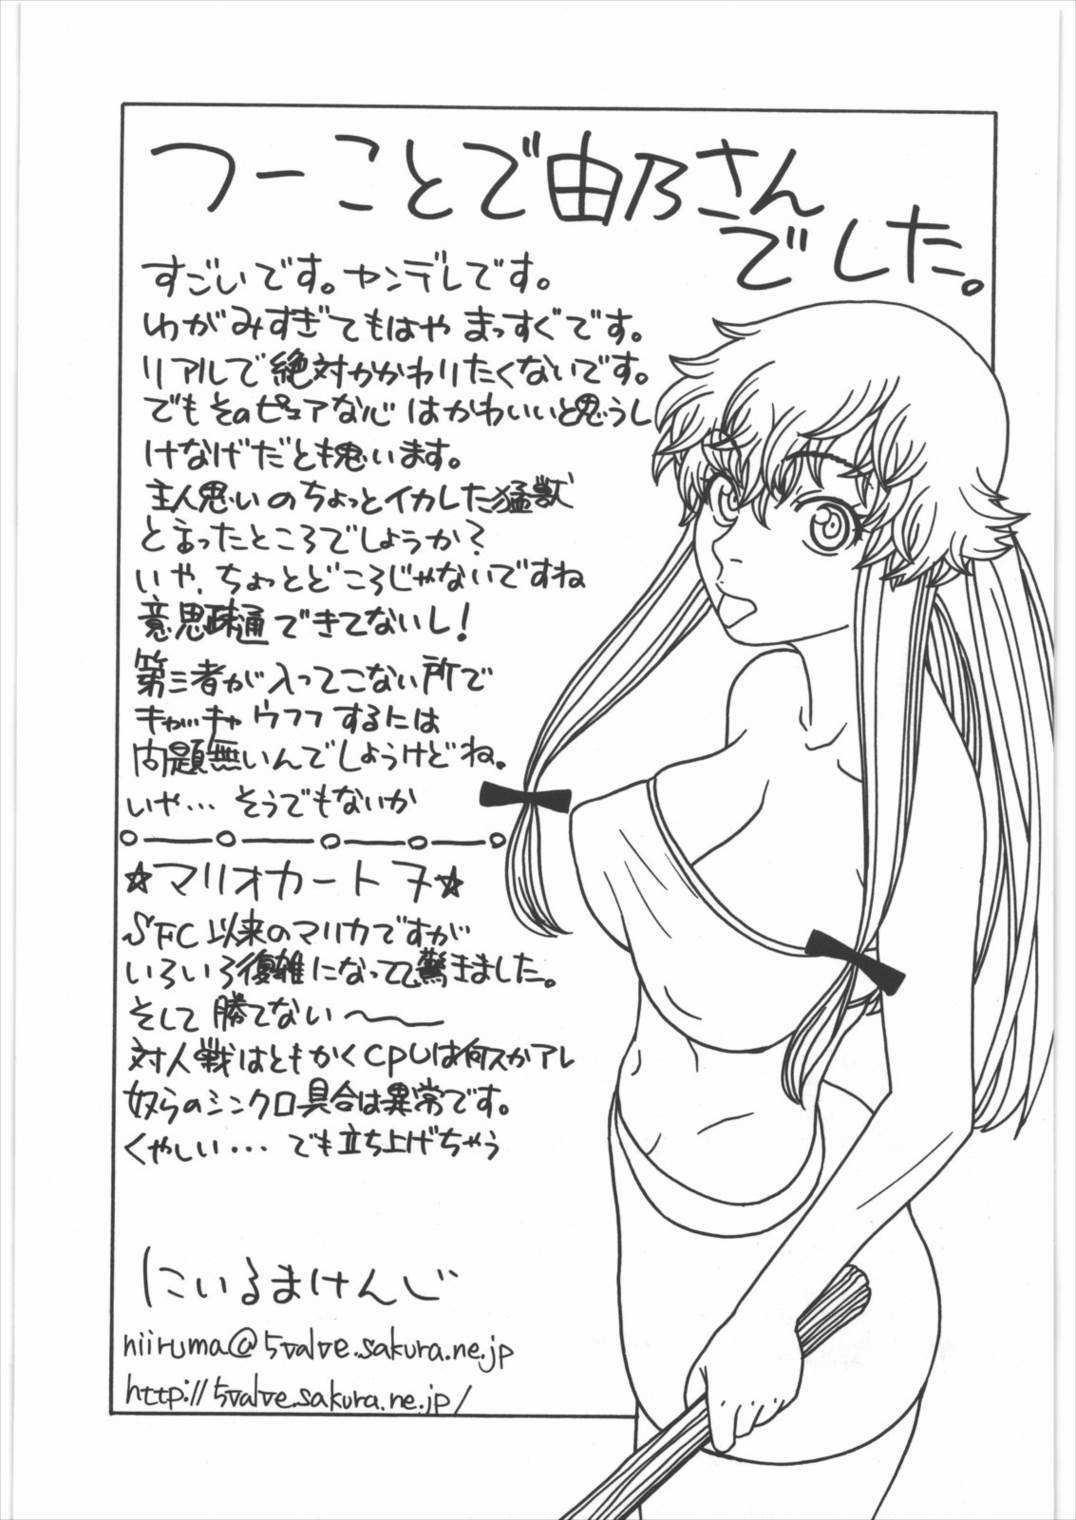 つーことで由乃さん
でした。
すごいです。ヤンデレです。
わがみすぎてもはやまっすぐです。
リアルで絶対かかわりたくないです。
でもそのピュアな心はかわいいと思うし
けなげだとも思います。
主人思いのちょっとイカした猛獣
と言ったところでしょうか?
いや、ちょっとどころじゃないですね
意思疎通できてないし!
第三者が入ってこない所で
キャッキャウフフするには
問題無いんでしょうけどね。
いや…そうでもないか
☆マリオカート7☆
SFC以来のマリカですが
いろいろ復雑になってて驚きました。
そして勝てない〜
対人戦はともかくCPUは何スかアレ
奴らのシンクロ具合は異常です。
くやしい…でも立ち上げちゃう
にいるまけんじ
niiruma@5valve.sakura.ne.jp
http://5valve.sakura.ne.jp/